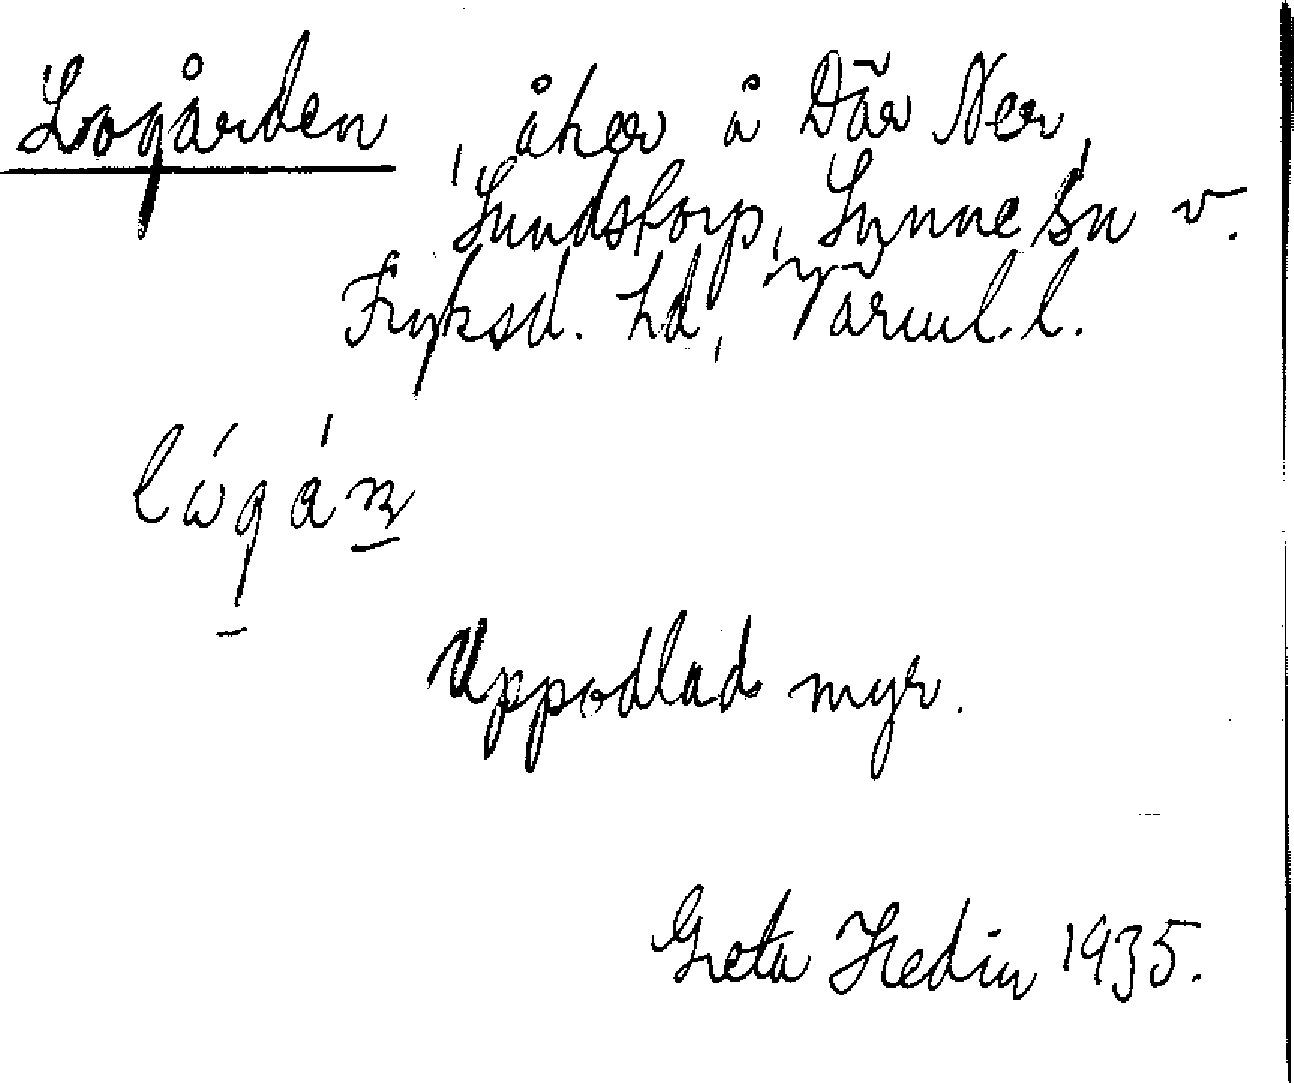 Logården, åker å Där Ner,
Sundstorp, Sunne sn v.
Fryksd. hd, Värml. l.
lógán
Uppodlad myr.
Greta Hedin 1935.